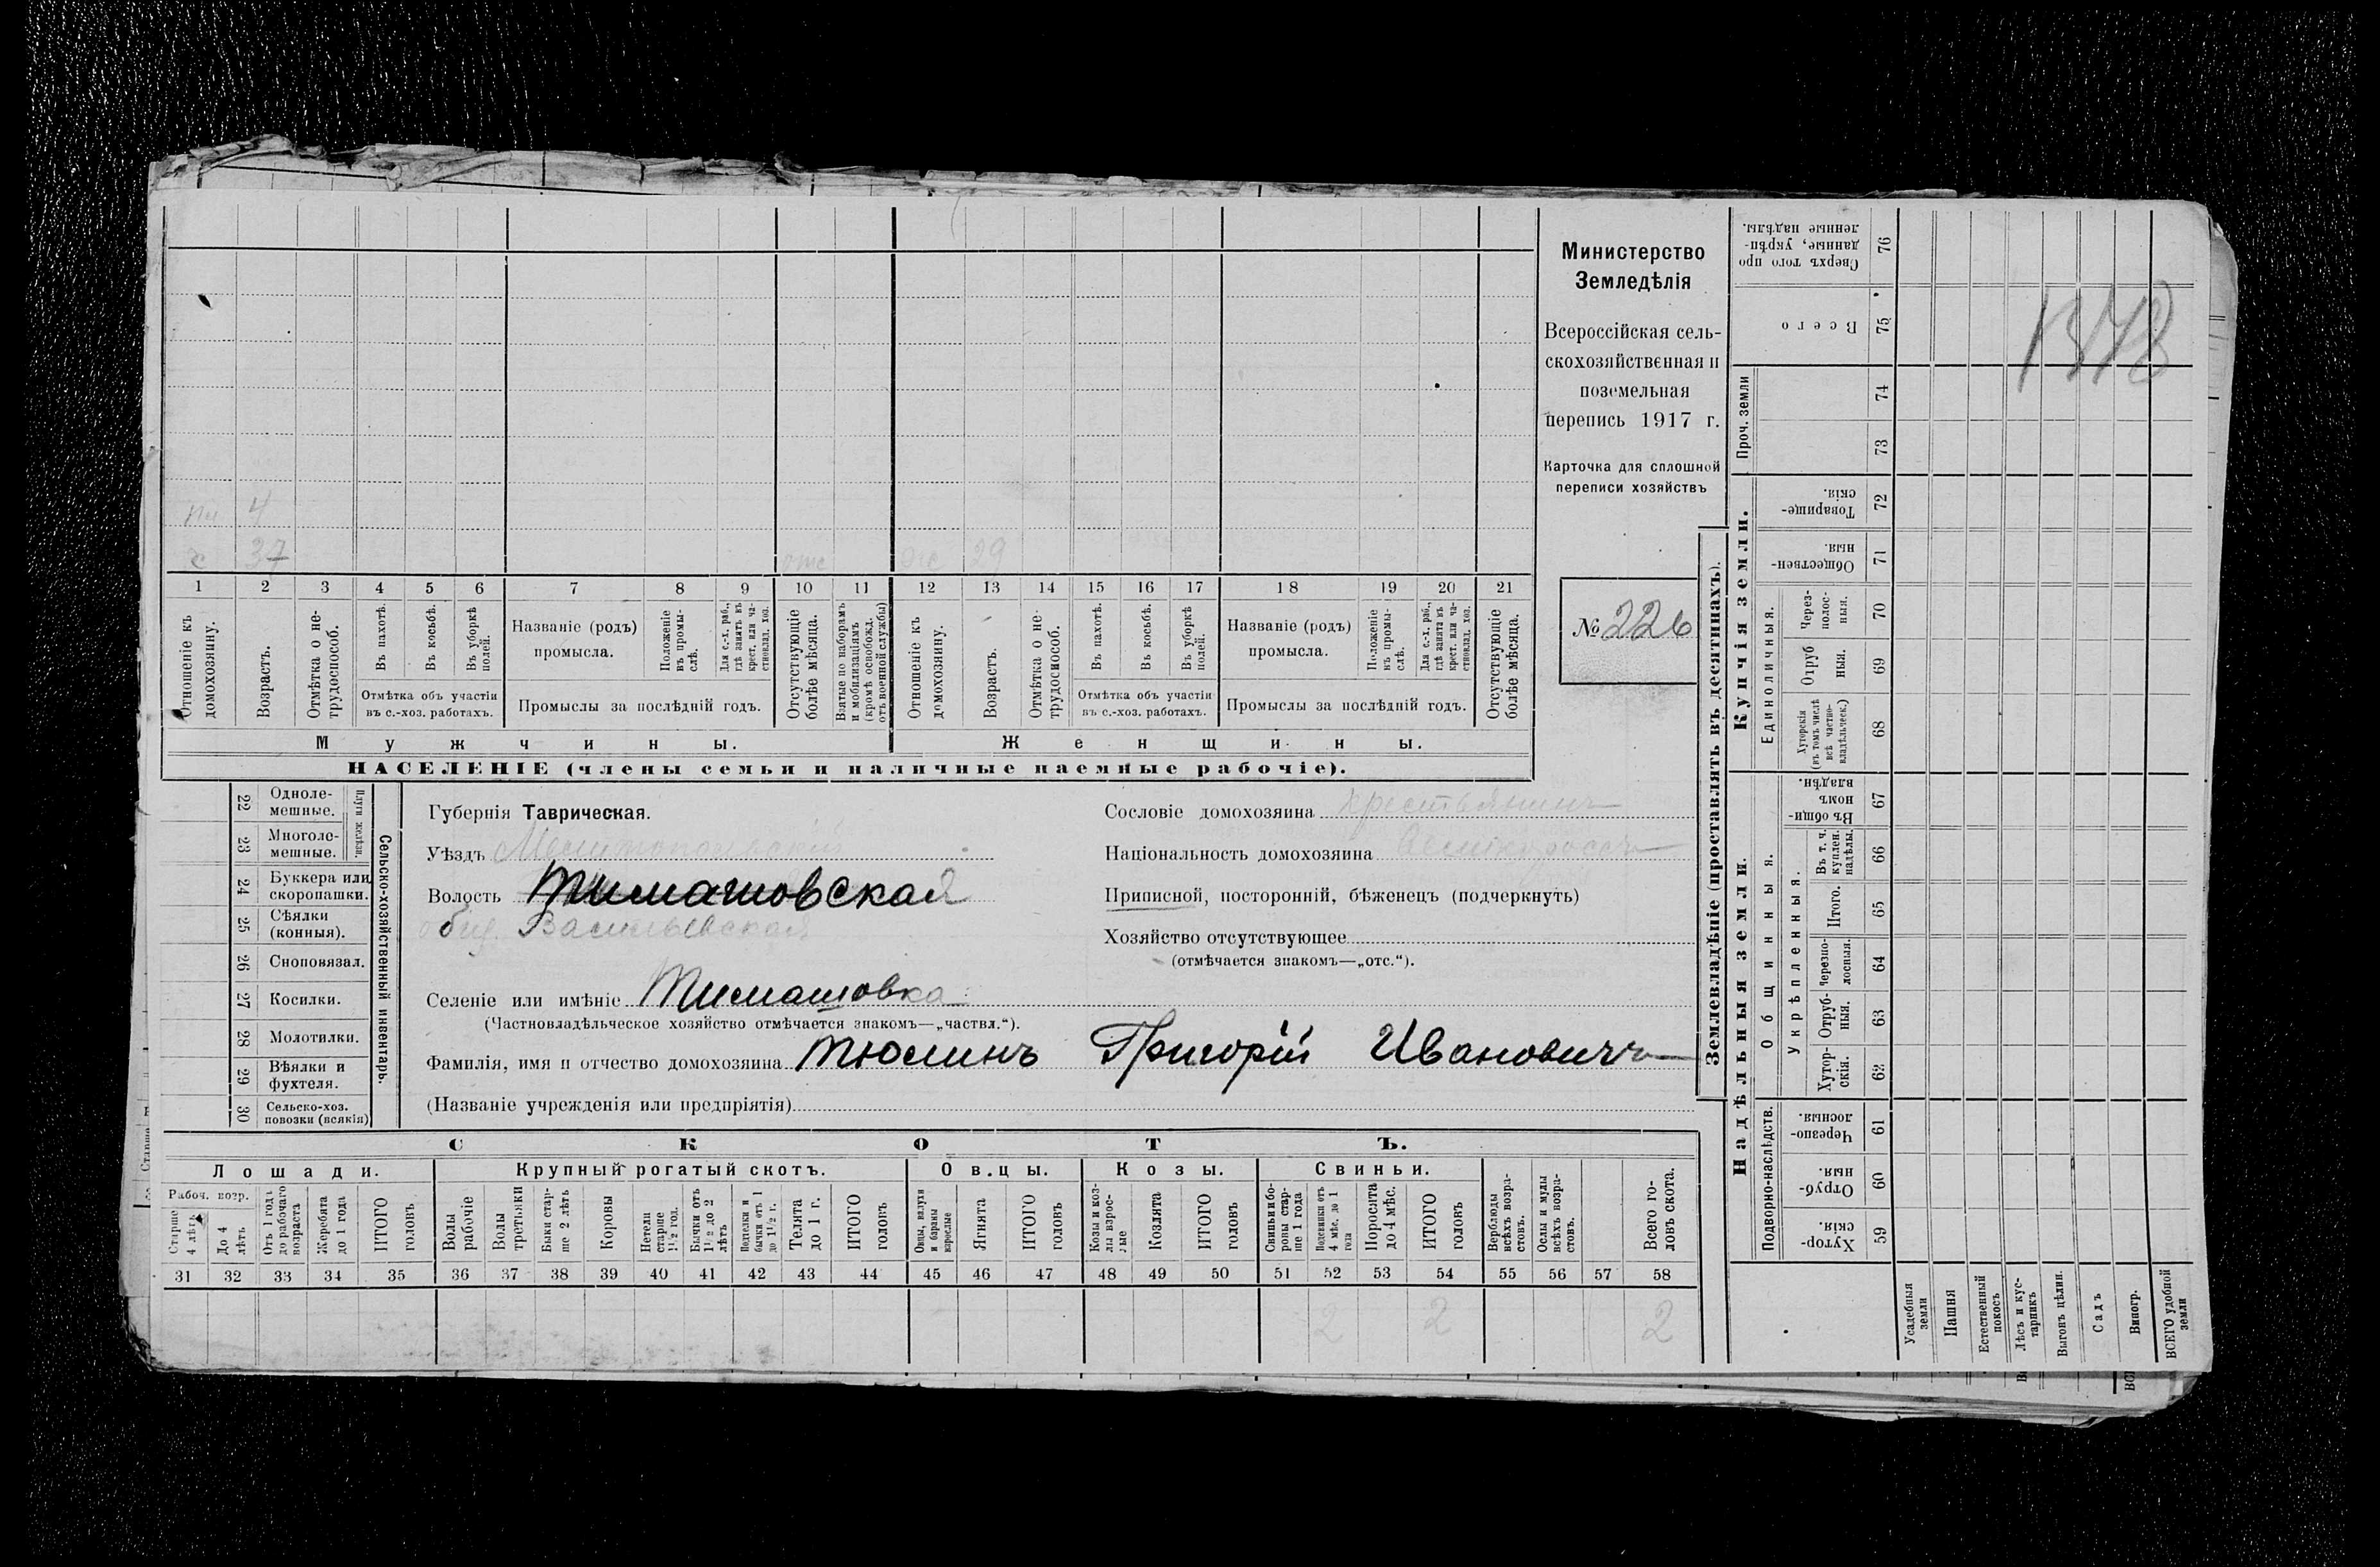 4
с 37 отс ж 29
1 2 3 4 5 6 7 8 9 10 11 12 13 14 15 16 17 18 19 20 21
Отношеніе къ домохозяину.
Возрастъ.
Отмѣтка о не-трудоспособ.
Въ пахотѣ.
Въ косьбѣ.
Въ уборкѣ полей.
Отмѣтка объ участіи
въ с.-хоз. работахъ.
Названіе (родъ)
промысла.
Положеніе въ промы-слѣ.
Для с.-х. раб., гдѣ занятъ въ крест. или ча-стновлад. хоз.
Промыслы за послѣдній годъ.
Отсутствующіе болѣе мѣсяца.
Взятые по наборамъ и мобилизаціямъ (кромѣ освобожд. отъ военной службы)
Отношеніе къ домохозяину.
Возрастъ.
Отмѣтка о не-трудоспособ.
Въ пахотѣ.
Въ косьбѣ.
Въ уборкѣ полей.
Отмѣтка объ участіи
въ с.-хоз. работахъ.
Названіе (родъ)
промысла.
Положеніе въ промы-слѣ.
Для с.-х. раб., гдѣ занята въ крест. или ча-стновлад. хоз.
Промыслы за послѣдній годъ.
Отсутствующіе болѣе мѣсяца.
Мужчины. Женщины.
НАСЕЛЕНІЕ (члены семьи и наличные наемные рабочіе).
Министерство
Земледѣлія
Всероссійская сель-
скохозяйственная и
поземельная
перепись 1917 г.
Карточка для сплошной
переписи хозяйствъ
№ 226
22 Одноле-мешные.
23 Многоле-мешные.
Плуги желѣзн.
24 Буккера или скоропашки.
25 Сѣялки (конныя).
26 Сноповязал.
27 Косилки.
28 Молотилки.
29 Вѣялки и фухтеля.
30 Сельско-хоз. повозки (всякія)
Сельско-хозяйственный инвентарь.
Губернія Таврическая.
Уѣздъ Мелитопольскій
Волость Тимашовская
общ. Васильевская
Селеніе или имѣніе Тимашовка
(Частновладѣльческое хозяйство отмѣчается знакомъ—„частвл.“).
Фамилія, имя и отчество домохозяина Тюминъ Григорій Ивановичъ
(Названіе учрежденія или предпріятія)
Сословіе домохозяина крестьянинъ
Національность домохозяина великороссъ
Приписной, посторонній, бѣженецъ (подчеркнуть)
Хозяйство отсутствующее
(отмѣчается знакомъ—„отс.“).
СКОТЪ.
Лошади. Крупный рогатый скотъ. Овцы. Козы. Свиньи.
Рабоч. возр.
Старше 4 лѣтъ
До 4 лѣтъ
Отъ 1 года до рабочаго возраста
Жеребята до 1 года
ИТОГО головъ
Волы рабочіе
Волы третьяки
Быки стар-ше 2 лѣтъ
Коровы
Нетели старше 1½ год.
Бычки отъ 1½ до 2 лѣтъ
Подтелки и бычки отъ 1 до 1½ г.
Телята до 1 г.
ИТОГО головъ
Овцы, валухи и бараны взрослые
Ягнята
ИТОГО головъ
Козы и коз-лы взрос-лые
Козлята
ИТОГО головъ
Свиньи и бо-ровы стар-ше 1 года
Подсвинки отъ 4 мѣс. до 1 года
Поросята до 4 мѣс.
ИТОГО головъ
Верблюды всѣхъ возра-стовъ.
Ослы и мулы всѣхъ возра-стовъ.
Всего го-ловъ скота.
31 32 33 34 35 36 37 38 39 40 41 42 43 44 45 46 47 48 49 50 51 52 53 54 55 56 57 58
2 2 2
Землевладѣніе (проставлять въ десятинахъ).
Купчія земли.
Надѣльныя земли.
Проч. земли
Единоличныя.
Общинныя.
Укрѣпленныя.
Подворно-наслѣдств.
Сверхъ того про данные, укрѣп-ленные надѣлы. 76
Всего 75
74
73
Товарище-скія. 72
Обществен-ныя. 71
Через-полос-ныя. 70
Отруб ныя. 69
Хуторскія (въ томъ числѣ всѣ частно-владѣльческ.) 68
Въ общи-номъ владѣн. 67
Въ т. ч. куплен. надѣлы. 66
Итого. 65
Черезпо-лосныя. 64
Отруб-ныя. 63
Хутор-скія. 62
Черезпо-лосныя. 61
Отруб-ныя. 60
Хутор-скія. 59
Усадебныя земли
Пашня
Естественный покосъ
Лѣсъ и кус-тарникъ
Выгонъ цѣлин.
Садъ
Виногр.
ВСЕГО удобной земли